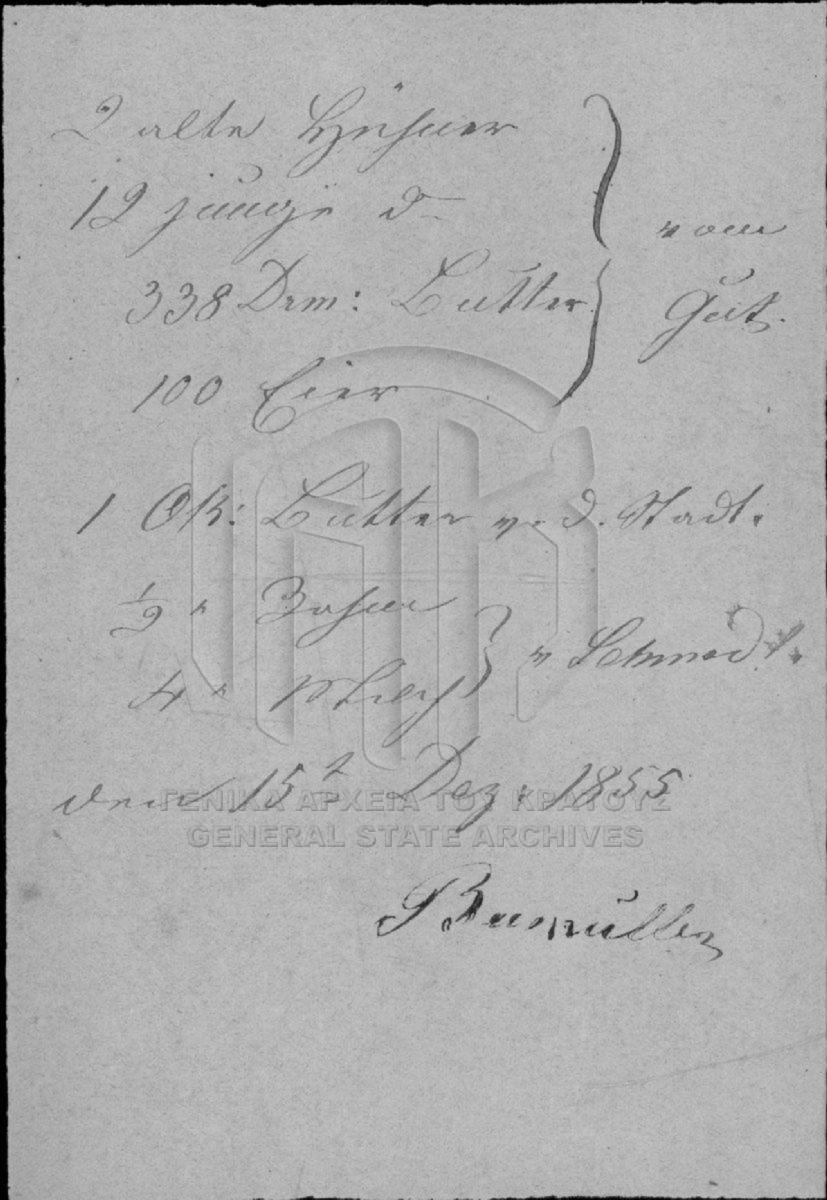 2 alte Hühner
12 junge do
vom
338 Drm: Butter
Gut.
100 Eier
1 Ok: Butter v. d. Stadt.
1/2 "
4 " Milch
v Schmidt.
den 15t Dez: 1855
ΓΕΝΙΚΑ ΑΡΧΕΙΑ ΤΟΥ ΚΡΑΤΟΥΣ
GENERAL STATE ARCHIVES